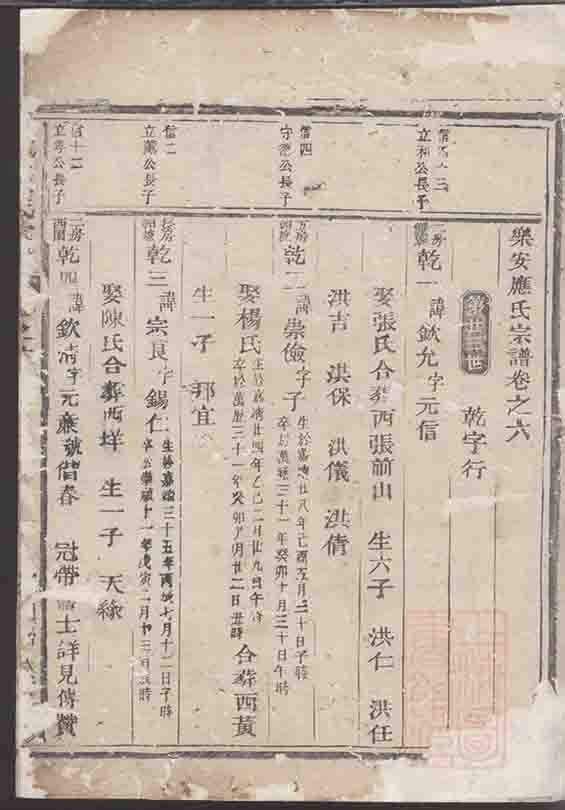 樂安應氏宗譜卷之六
乾字行
立和公長子
乾一 諱欽允字元信
娶張氏合葬西張前山 生六子 洪仁 洪任
洪吉 洪保 洪儀 洪倩
信四
守公長子
乾二 諱崇儉字子
生於嘉靖廿八年己酉五月三十日子時
卒於萬曆三十一年癸卯十月三十日午時
娶楊氏
生於嘉靖廿四年乙巳二月廿九日午時
卒於萬曆三十一年癸卯月廿二日丑時
合葬西黃
生一子 邦宜
信二
立戴公長子
長房
乾三 諱宗良字錫仁
生於嘉靖三十五年丙辰七月十二日子時
十一年戊寅二月十三日時
娶陳氏合葬西垟 生一子 天緣
信十二
立孝公長子
二房
乾四 諱欽清字元號偕春 冠帶士詳見傳贊